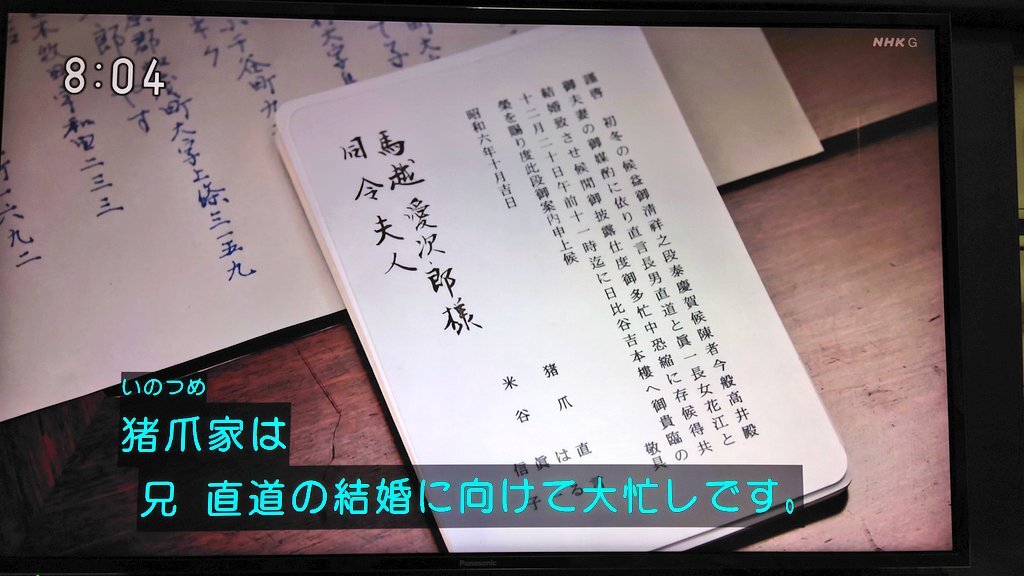 8:04
NHK G
謹啓 初冬の候益御清祥之段泰慶賀候陳者今般高井殿
御夫妻の御媒酌に依り直言長男直道と眞一長女花江と
結婚致させ候間御披露仕度御多忙中恐縮に存候得共
十二月二十日午前十一時迄に日比谷吉本樓へ御貴臨の
榮を賜り度此段御案内申上候
敬具
昭和六年十月吉日
猪爪直
はる
米谷眞
信子
馬越愛次郎様
同令夫人
町大字上條三一五九
和田二三三
一六九二
いのつめ
猪爪家は
兄 直道の結婚に向けて大忙しです。
Panasonic